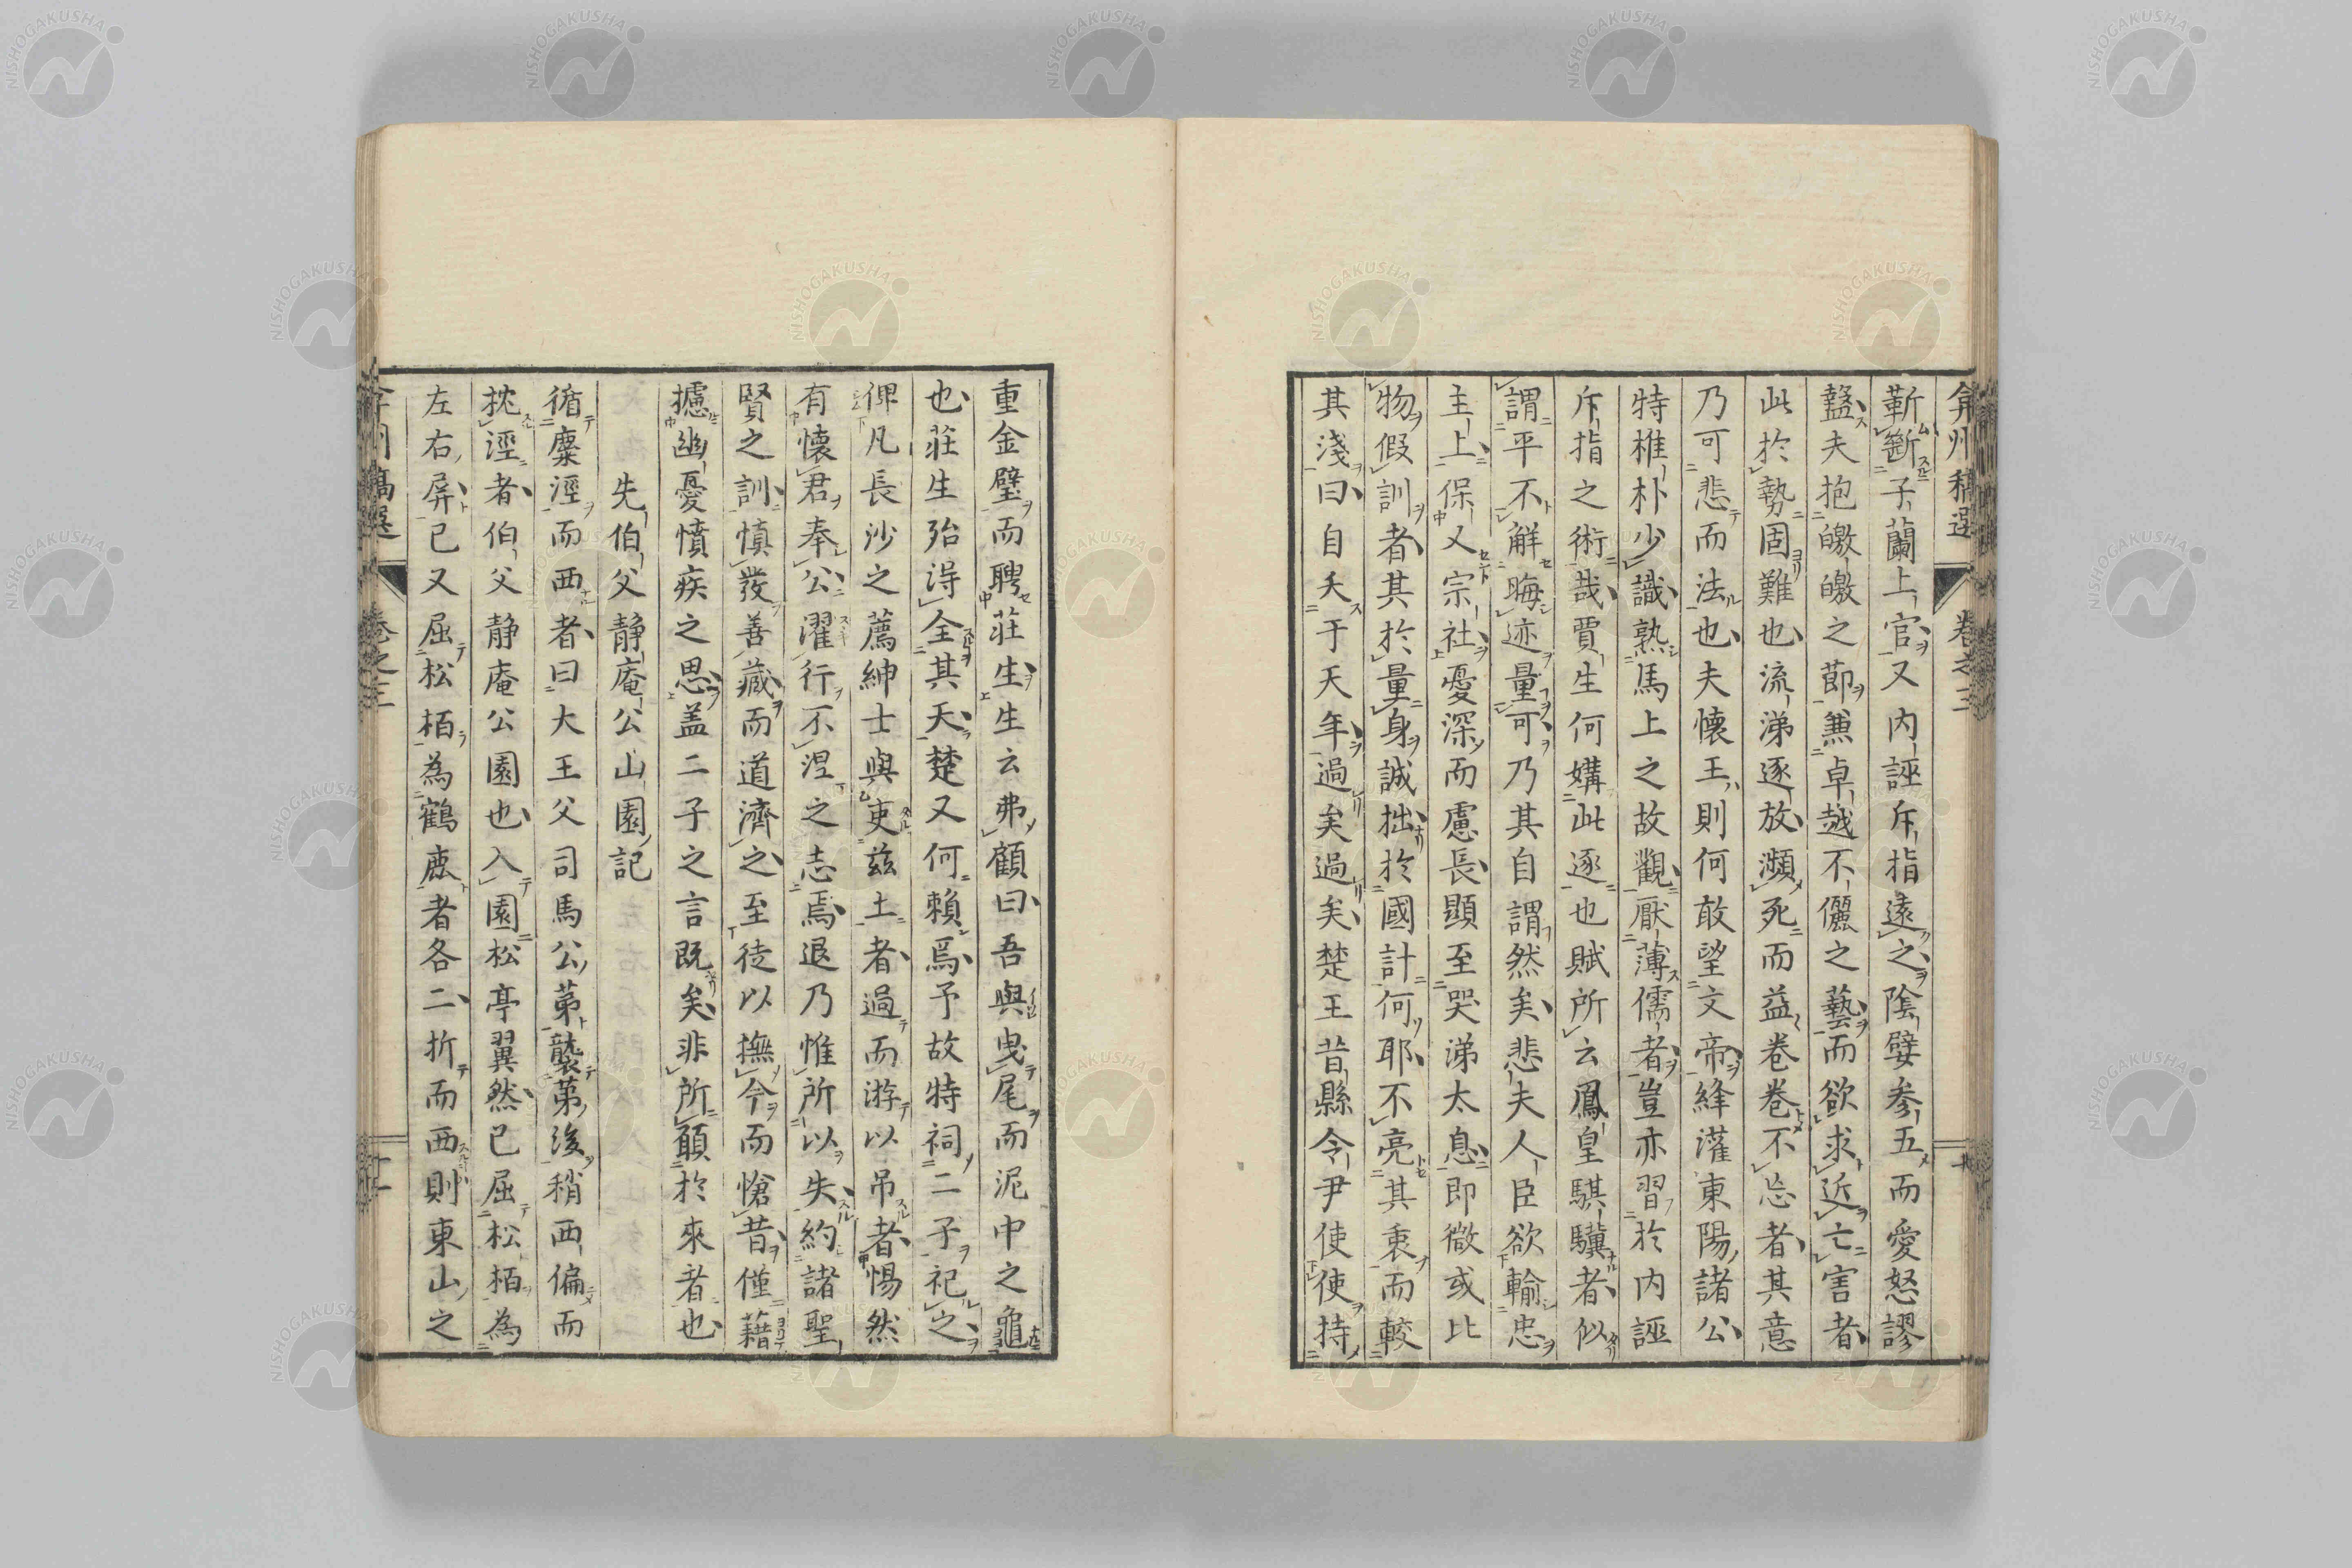 弇州稿選 卷之三
靳斷子蘭上官又內誣斥指遠之陰嬖參五而愛怒謬
盭夫抱皦皦之節兼卓越不儷之藝而欲求近亡害者
此於勢固難也流涕逐放瀕死而益卷卷不忘者其意
乃可悲而法也夫懷王則何敢望文帝絳灌東陽諸公
特椎朴少識熟馬上之故觀厭薄儒者豈亦習於內誣
斥指之術哉賈生何媾此逐也賦所云鳳皇騏驥者似
謂平不解晦迹量可乃其自謂然矣悲夫人臣欲輸忠
主上保乂宗社憂深而慮長顯至哭涕太息即微或比
物假訓者其於量身誠拙於國計何耶不亮其衷而較
其淺曰自夭于天年過矣過矣楚王昔縣令尹使使持
重金璧而聘莊生生云弗顧曰吾與曳尾而泥中之龜
也莊生殆得全其天楚又何賴焉予故特祠二子祀之
俾凡長沙之薦紳士與吏茲土者過而游以吊者惕然
有懷君奉公濯行不涅之志焉退乃惟所以失約諸聖
賢之訓慎發善藏而道濟之至徒以撫今而愴昔僅藉
攄幽憂憤疾之思盖二子之言既矣非所願於來者也
先伯父靜庵公山園記
循麋涇而西者曰大王父司馬公第襲第後稍西偏而
枕涇者伯父靜庵公園也入園松亭翼然已屈松栢為
左右屏已又屈松栢為鶴鹿者各二折而西則東山之
弇州稿選 卷之三